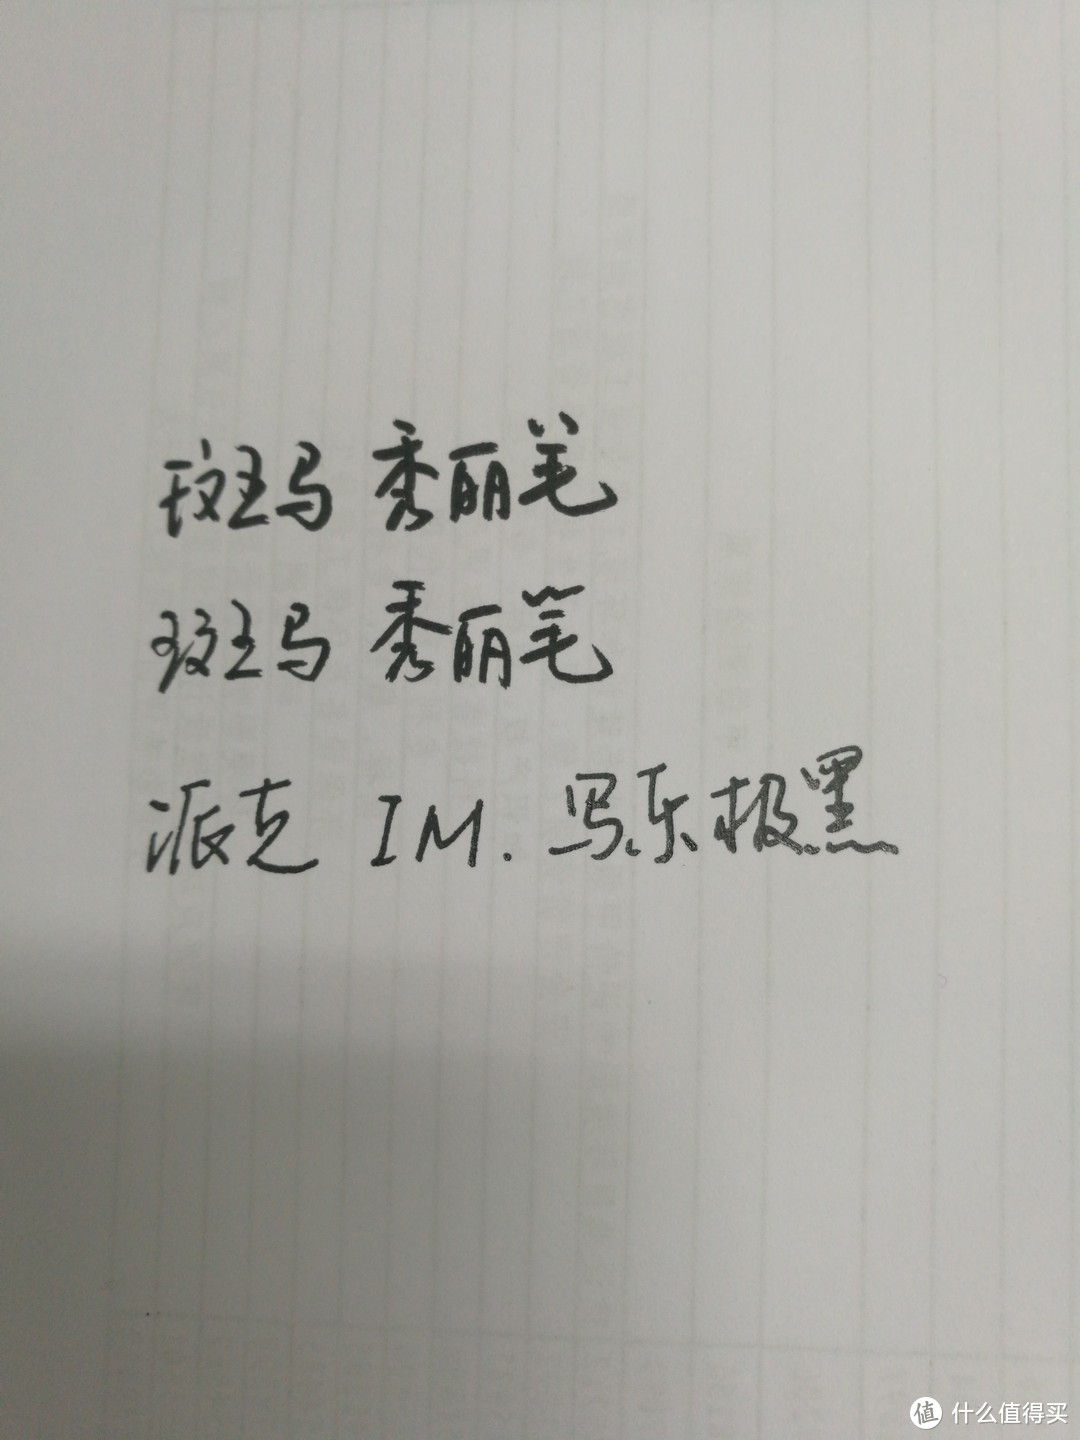 斑马 秀丽笔
斑马 秀丽笔
派克 IM. 写乐极黑
值 什么值得买